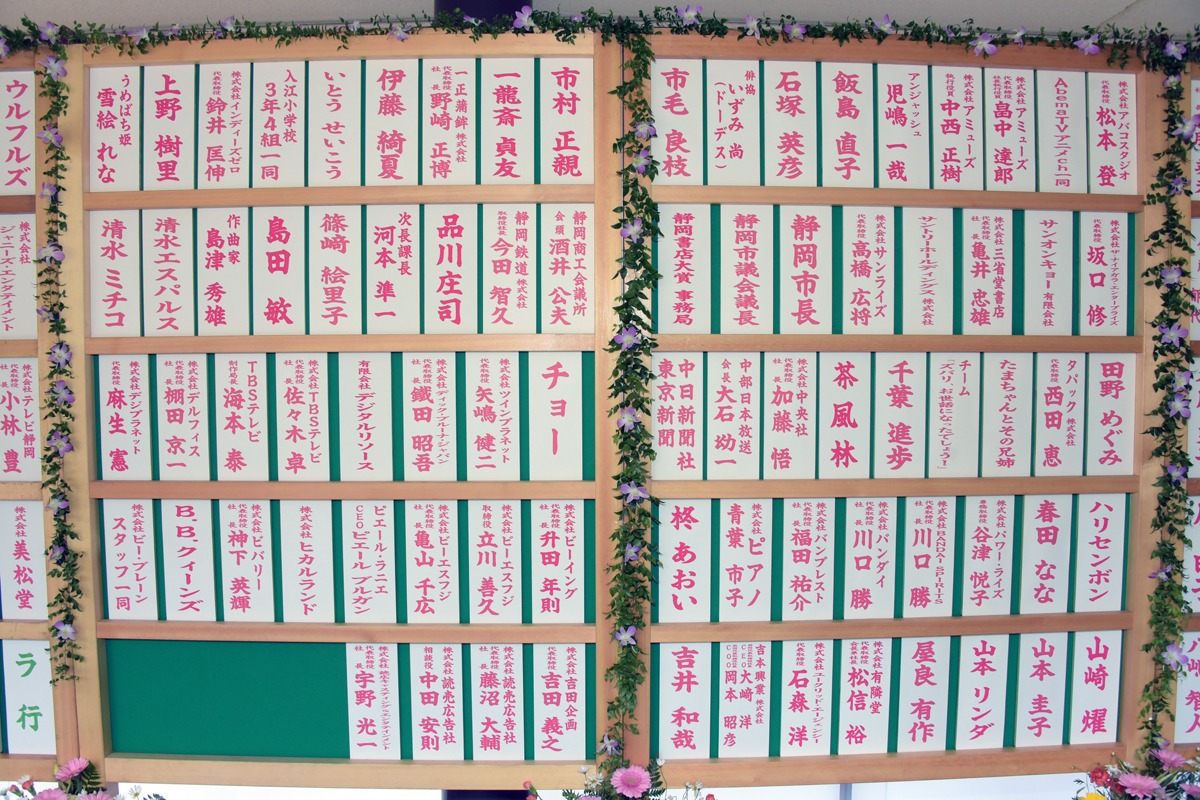 株式会社アバコスタジオ
代表取締役 松本 登
AbemaTVアニメch一同
株式会社アミューズ
代表取締役 社長執行役員 畠中 達郎
株式会社アミューズ
執行役員 中西 正樹
アンジャッシュ
児嶋 一哉
飯島 直子
石塚 英彦
俳協
いずみ 尚
(ドーデス)
市毛 良枝
株式会社ザ・ナイアガラ・エンタープライズ
代表取締役 坂口 修
サンオンキョー 有限会社
株式会社 三省堂書店
代表取締役 社長 亀井 忠雄
サントリーホールディングス 株式会社
株式会社サンライズ
代表取締役 高橋 広将
静岡市長
静岡市議会議長
静岡書店大賞 事務局
田野 めぐみ
タバック 株式会社
代表取締役 西田 恵
たまちゃんとその兄姉
チーム
「ズバリ、お世話になったでしょう!」
千葉 進歩
茶風林
株式会社中央社
代表取締役 社長 加藤 悟
中部日本放送
会長 大石 幼一
中日新聞社
東京新聞
ハリセンボン
春田 なな
株式会社パワー・ライズ
専務取締役 谷津 悦子
株式会社BANDAI SPIRITS
代表取締役 社長 川口 勝
株式会社バンダイ
代表取締役 社長 川口 勝
株式会社バンプレスト
代表取締役 社長 福田 祐介
株式会社ピアノ
青葉 市子
柊 あおい
山崎 燿
山本 圭子
山本 リンダ
屋良 有作
株式会社有隣堂
代表取締役 会長兼社長 松信 裕
株式会社ユークリッド・エージェンシー
代表取締役 石森 洋
吉本興業 株式会社
CEO 大﨑 洋
COO 岡本 昭彦
吉井 和哉
市村 正親
一龍斎 貞友
一正蒲鉾 株式会社
代表取締役 社長 野崎 正博
伊藤 綺夏
いとう せいこう
入江小学校
3年4組一同
株式会社インディーズゼロ
代表取締役 鈴井 匡伸
上野 樹里
うめばち姫
雪絵 れな
静岡商工会議所
会頭 酒井 公夫
静岡鉄道 株式会社
取締役社長 今田 智久
品川庄司
次長課長
河本 準一
篠﨑 絵里子
島田 敏
作曲家
島津 秀雄
清水エスパルス
清水 ミチコ
チョー
株式会社ツインプラネット
代表取締役 矢嶋 健二
株式会社ディック・ブルーナ・ジャパン
代表取締役 社長 鐵田 昭吾
有限会社デジタルリソース
株式会社TBSテレビ
代表取締役 社長 佐々木 卓
TBSテレビ
制作局長 海本 泰
株式会社デルフィス
代表取締役 社長 棚田 京一
株式会社デジフラネット
代表取締役 麻生 憲
株式会社ビーイング
代表取締役 升田 年則
株式会社ビーエスフジ
取締役 立川 善久
株式会社ビーエスフジ
代表取締役 社長 亀山 千広
ピエール・ラニエ
CEOピエール ブルダン
株式会社ヒカルランド
株式会社ビバリー
代表取締役 社長 神下 英輝
B.B.クィーンズ
株式会社ビー・ブレーン
スタッフ一同
株式会社吉田企画
代表取締役 吉田 義之
株式会社読売広告社
代表取締役 社長 藤沼 大輔
株式会社読売広告社
相談役 中田 安則
代表取締役 社長 宇野 光一
ウルフルズ
株式会社
ジャニーズ・エンタテイメント
株式会社テレビ静岡
代表取締役 社長 小林 豊
株式会社 美松堂
ラ行